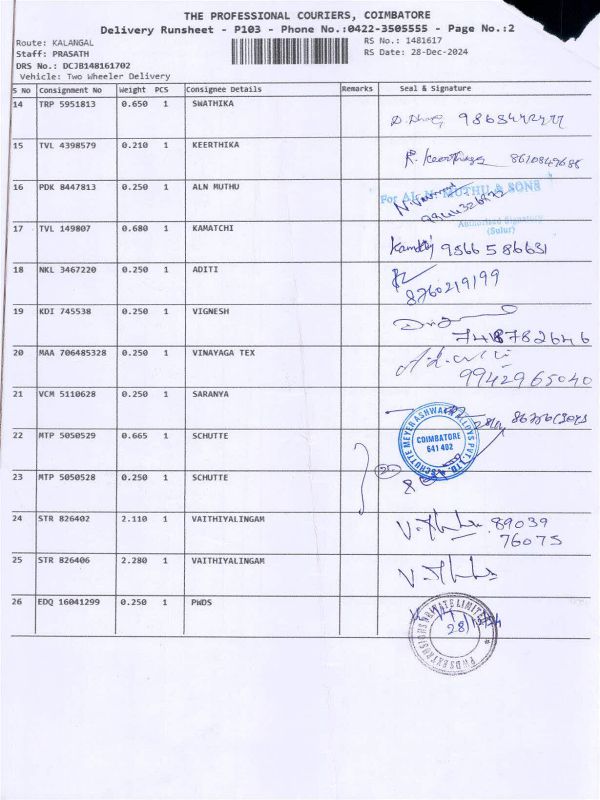 THE PROFESSIONAL COURIERS, COIMBATORE
Delivery Runsheet - P103 - Phone No.:0422-3505555 - Page No.:2
Route: KALANGAL RS No.: 1481617
Staff: PRASATH RS Date: 28-Dec-2024
DRS No.: DCJB148161702
Vehicle: Two Wheeler Delivery
S No Consignment No Weight PCS Consignee Details Remarks Seal & Signature
14 TRP 5951813 0.650 1 SWATHIKA
15 TVL 4398579 0.210 1 KEERTHIKA
R. Keerthiga 8610849688
16 PDK 8447813 0.250 1 ALN MUTHU
MUTHU & SONS
Authorised Signatory
(Sulur)
17 TVL 149807 0.680 1 KAMATCHI
9566586631
18 NKL 3467220 0.250 1 ADITI
8760219199
19 KDI 745538 0.250 1 VIGNESH
7418782646
20 MAA 706485328 0.250 1 VINAYAGA TEX
9942965040
21 VCM 5110628 0.250 1 SARANYA
22 MTP 5050529 0.665 1 SCHUTTE
SCHUTTE MEYER ASHWATH ALLOYS PVT. LTD.
COIMBATORE
641 402
23 MTP 5050528 0.250 1 SCHUTTE
24 STR 826402 2.110 1 VAITHIYALINGAM
89039
76075
25 STR 826406 2.280 1 VAITHIYALINGAM
26 EDQ 16041299 0.250 1 PWDS
PRIVATE LIMITED
28/12/24